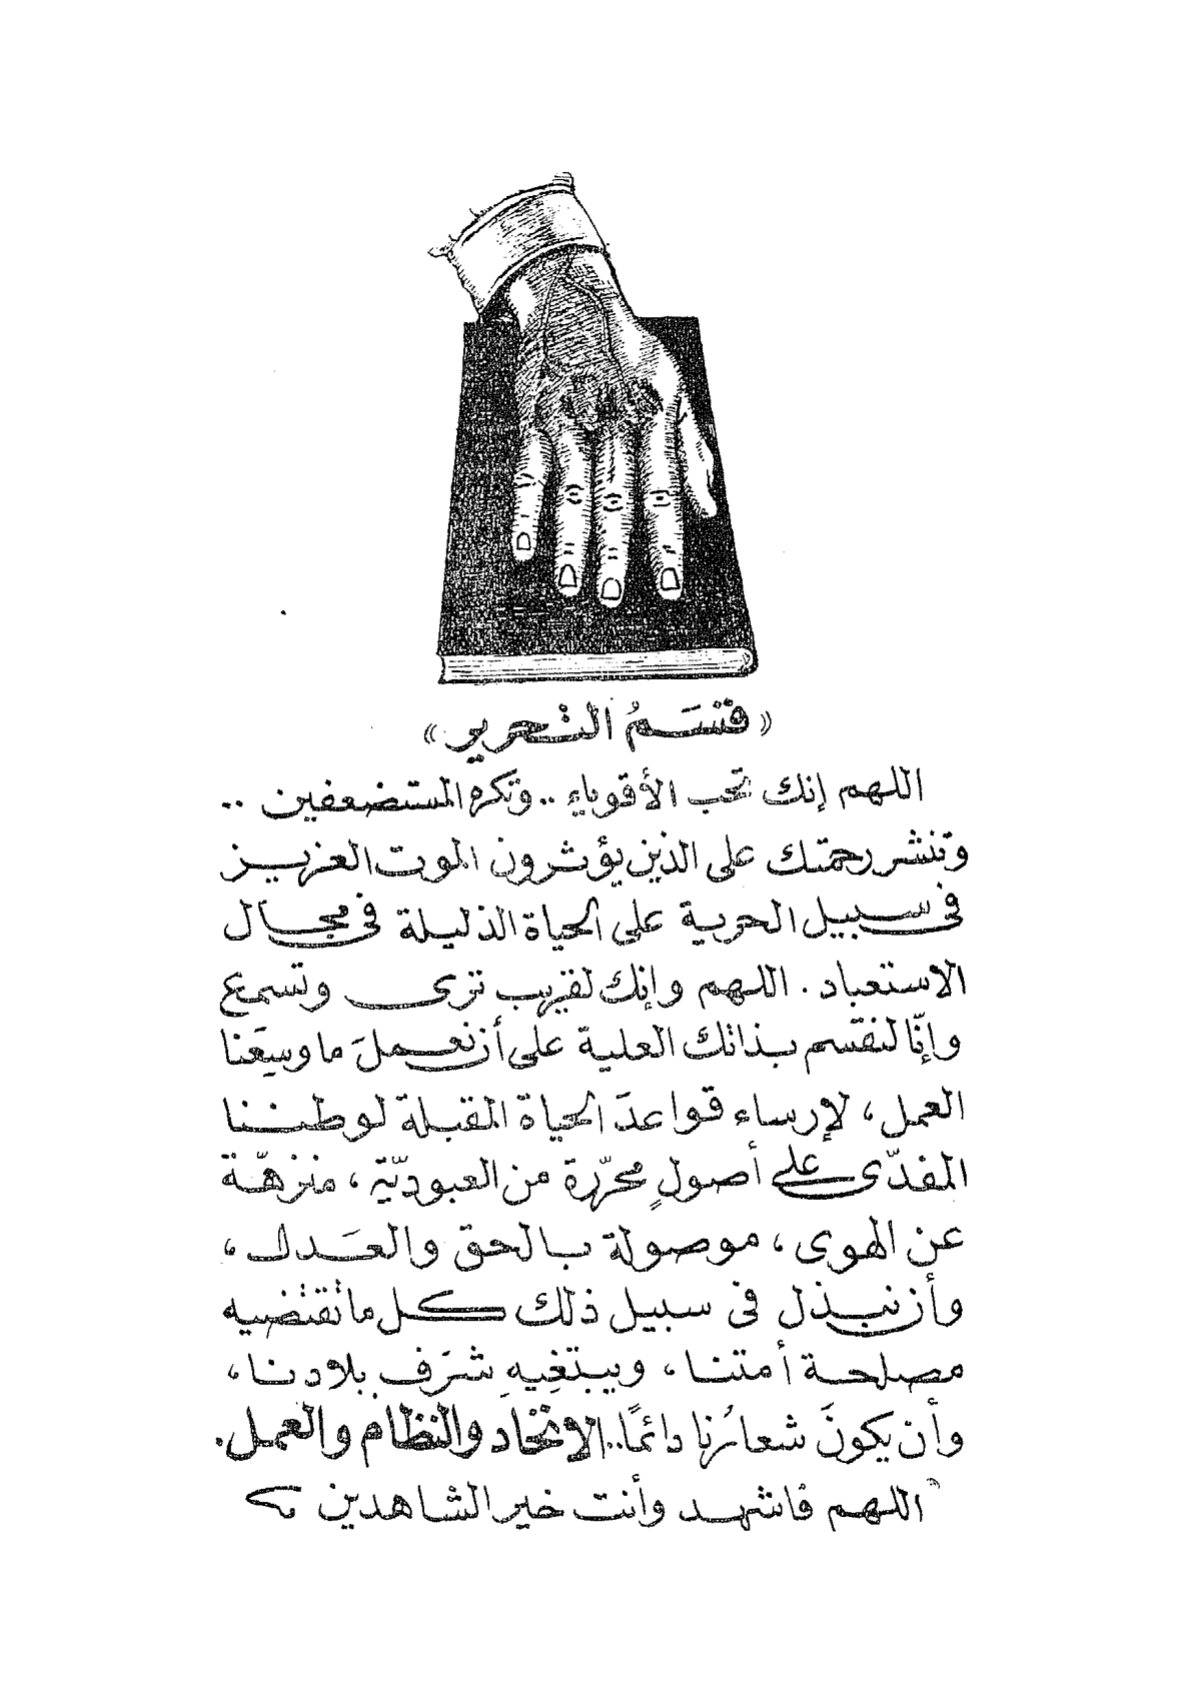 « قَسَمُ التْحرير »
اللهم إنك تحب الأقوياء .. وتكره المستضعفين ..
وتنشر رحمتك على الذين يؤثرون الموت العزيز
فى سبيل الحرية على الحياة الذليلة فى مجال
الاستعباد . اللهم وإنك لقريب ترى وتسمع
وإنّا لنقسم بذاتك العلية على أن نعملَ ما وسِعَنا
العمل ، لإرساء قواعدَ الحياة المقبلة لوطننا
المفدّى على أصولٍ محرّرة من العبوديّة ، منزهّة
عن الهوى ، موصولة بالحق والعَدل ،
وأن نبذل فى سبيل ذلك كل ما تقتضيه
مصلحة أمتنا ، ويبتغِيهِ شرَف بلادنا ،
وأن يكونَ شعارُنا دائمًا .. الاتحاد والنظام والعمل .
اللهم فاشهد وأنت خير الشاهدين